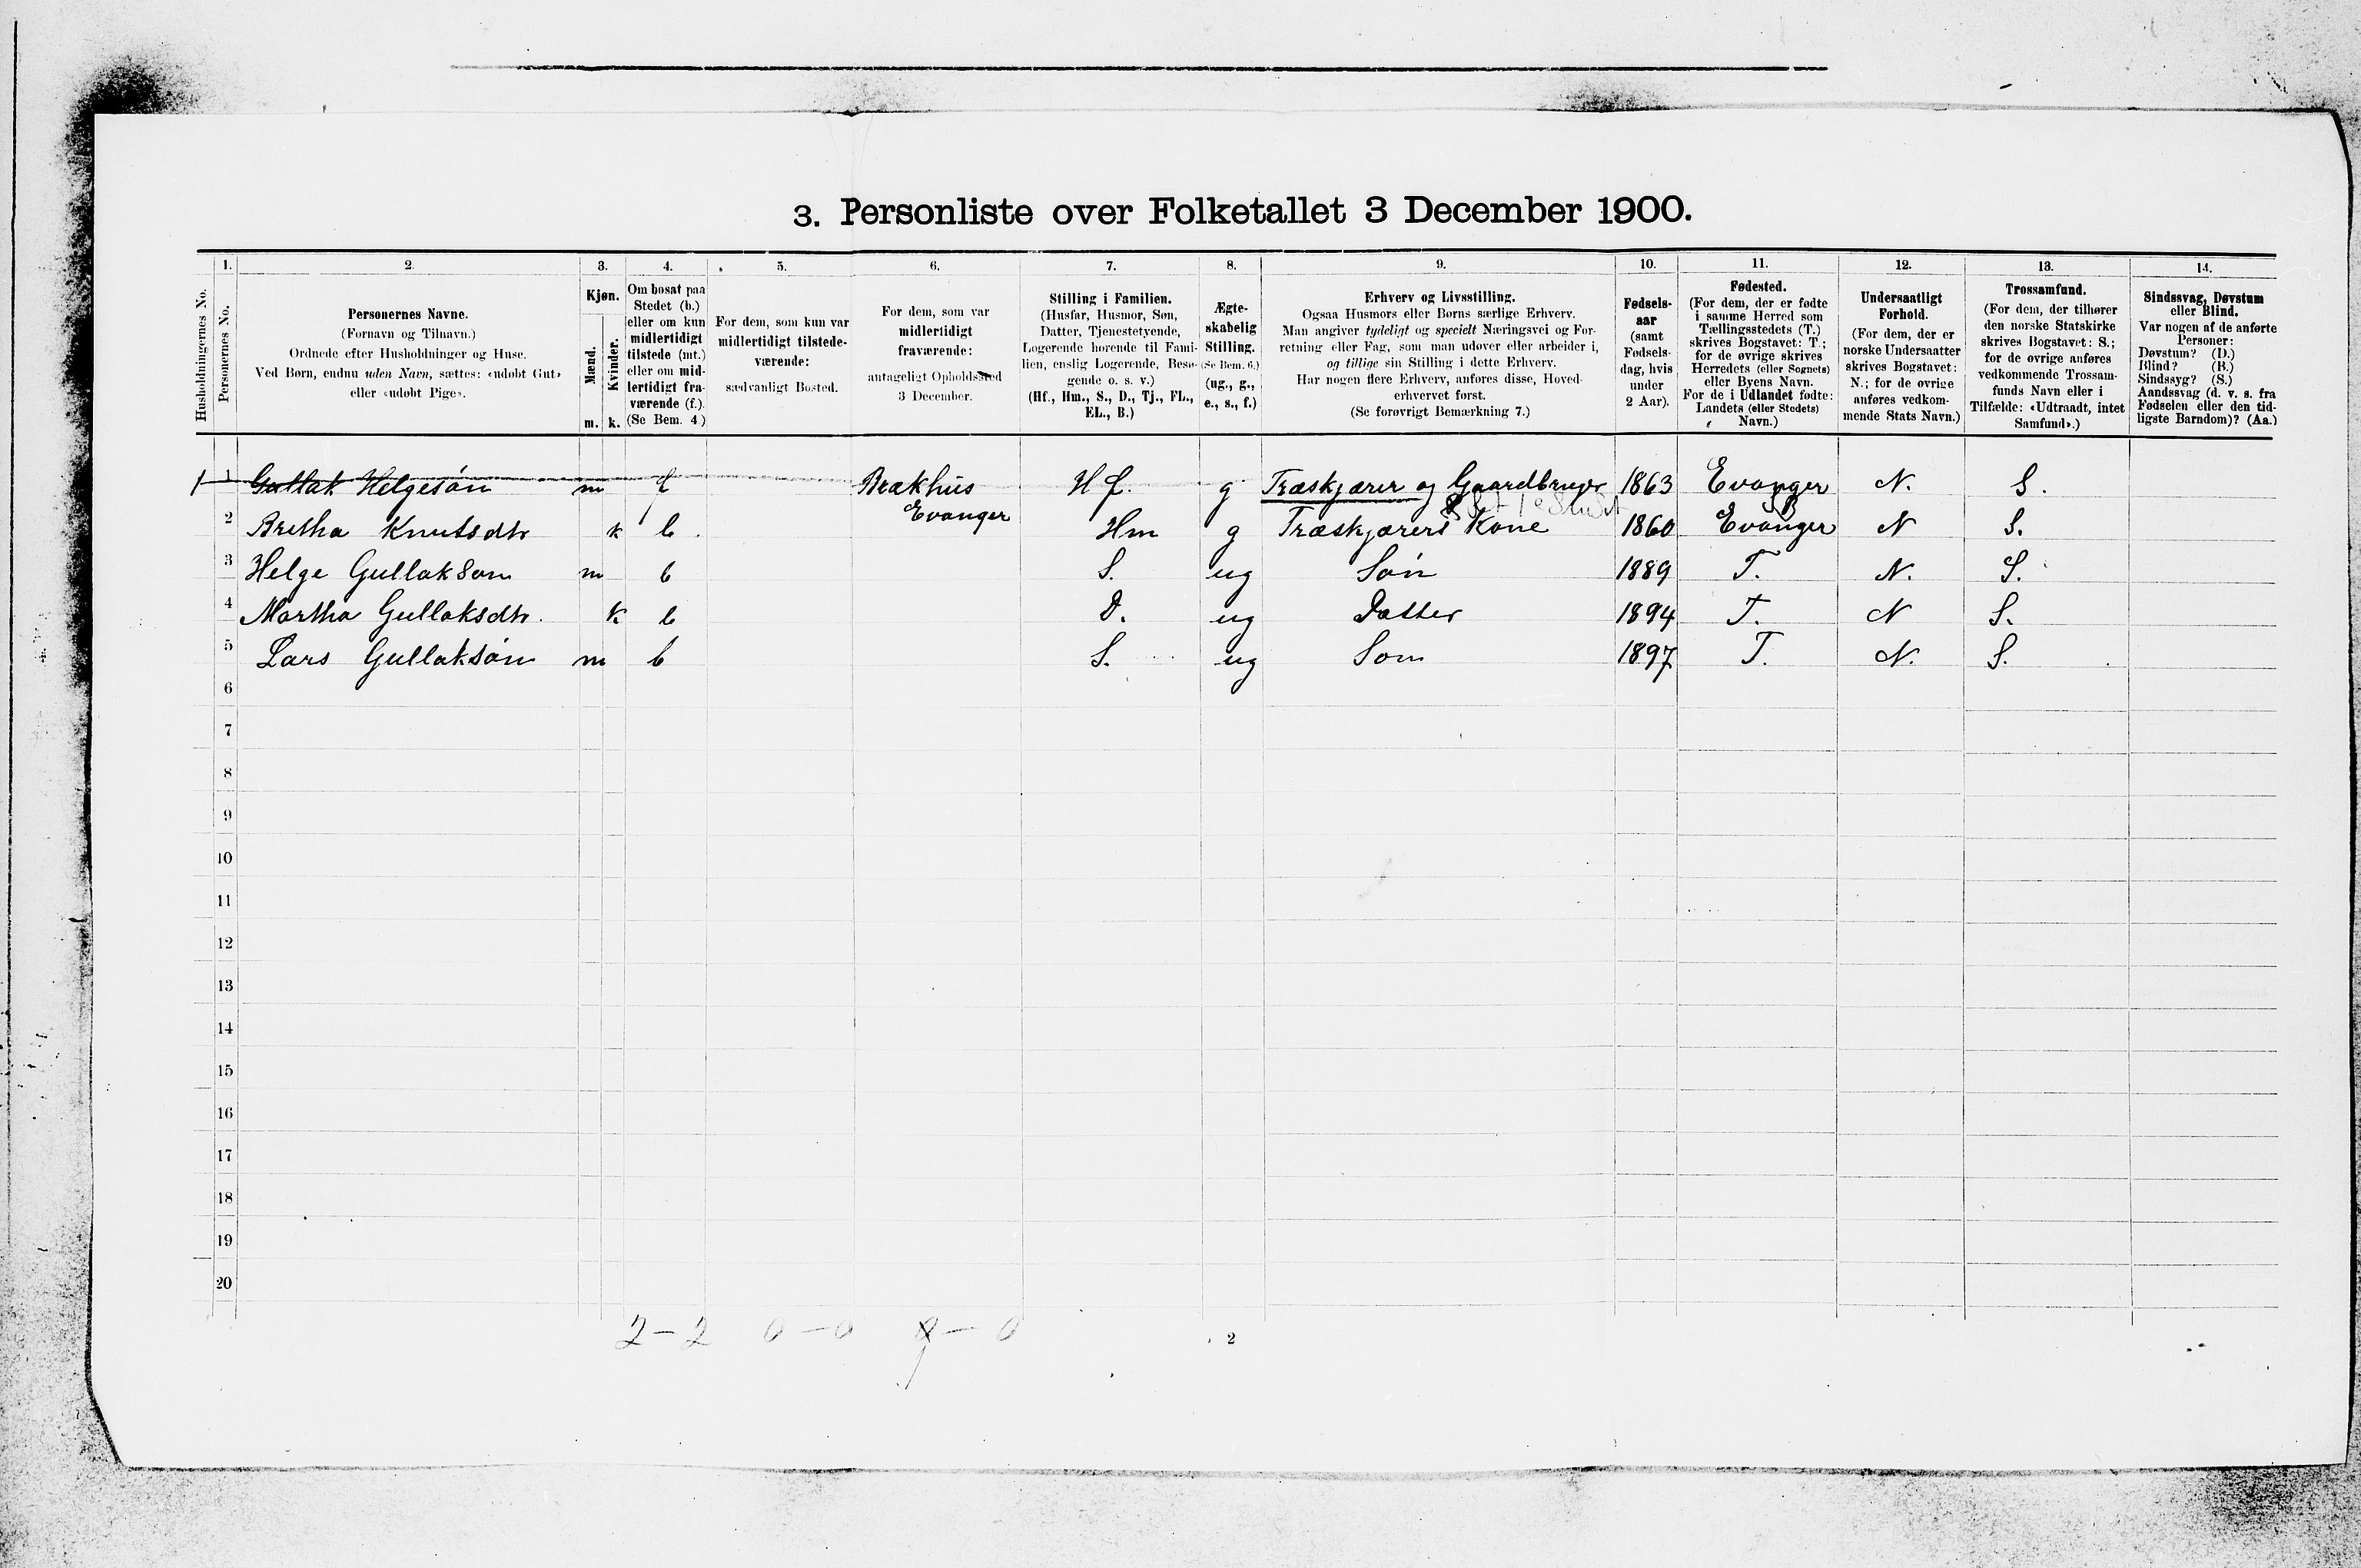 3. Personliste over Folketallet 3 December 1900.
Husholdningernes No.
1.
Personernes No.
2.
Personernes Navne.
(Fornavn og Tilnavn.)
Ordnede efter Husholdninger og Huse.
Ved Børn, endnu uden Navn, sættes: «udøbt Gut»
eller «udøbt Pige».
3.
Kjøn.
Mænd.
Kvinder.
m. k.
4.
Om bosat paa
Stedet (b.)
eller om kun
midlertidigt
tilstede (mt.)
eller om mid-
lertidigt fra-
værende (f.).
(Se Bem. 4.)
5.
For dem, som kun var
midlertidigt tilstede-
værende:
sædvanligt Bosted.
6.
For dem, som var
midlertidigt
fraværende:
antageligt Opholdssted
3 December.
7.
Stilling i Familien.
(Husfar, Husmor, Søn,
Datter, Tjenestetyende,
Logerende hørende til Fami-
lien, enslig Logerende, Besø-
gende o. s. v.)
(Hf., Hm., S., D., Tj., FL.,
EL., B.)
8.
Ægte-
skabelig
Stilling.
(Se Bem. 6.)
(ug., g.,
e., s., f.)
9.
Erhverv og Livsstilling.
Ogsaa Husmors eller Børns særlige Erhverv.
Man angiver tydeligt og specielt Næringsvei og For-
retning eller Fag, som man udøver eller arbeider i,
og tillige sin Stilling i dette Erhverv.
Har nogen flere Erhverv, anføres disse, Hoved-
erhvervet først.
(Se forøvrigt Bemærkning 7.)
10.
Fødsels-
aar
(samt
Fødsels-
dag, hvis
under
2 Aar).
11.
Fødested.
(For dem, der er fødte
i samme Herred som
Tællingsstedets (T.)
skrives Bogstavet: T.;
for de øvrige skrives
Herredets (eller Sognets)
eller Byens Navn.
For de i Udlandet fødte:
Landets (eller Stedets)
Navn.)
12.
Undersaatligt
Forhold.
(For dem, der er
norske Undersaatter
skrives Bogstavet:
N.; for de øvrige
anføres vedkom-
mende Stats Navn.)
13.
Trossamfund.
(For dem, der tilhører
den norske Statskirke
skrives Bogstavet: S.;
for de øvrige anføres
vedkommende Trossam-
funds Navn eller i
Tilfælde: «Udtraadt, intet
Samfund».)
14.
Sindssvag, Døvstum
eller Blind.
Var nogen af de anførte
Personer:
Døvstum? (D.)
Blind? (B.)
Sindssyg? (S.)
Aandssvag (d. v. s. fra
Fødselen eller den tid-
ligste Barndom)? (Aa.)
1 1 Gullak Helgesøn m f Brækhus Evanger Hf. g Træskjærer og Gaardbruger 1863 Evanger N. S.
2 Bretha Knutsdtr k b. Hm g Træskjærers Kone 1860 Evanger N S.
3 Helge Gullakson m b S. ug Søn 1889 T. N. S.
4 Martha Gullaksdtr. k b D. ug Datter 1894 T. N S.
5 Lars Gullaksøn m b S. ug Søn 1897 T. N. S.
6
7
8
9
10
11
12
13
14
15
16
17
18
19
20
2-2 0-0 0
2